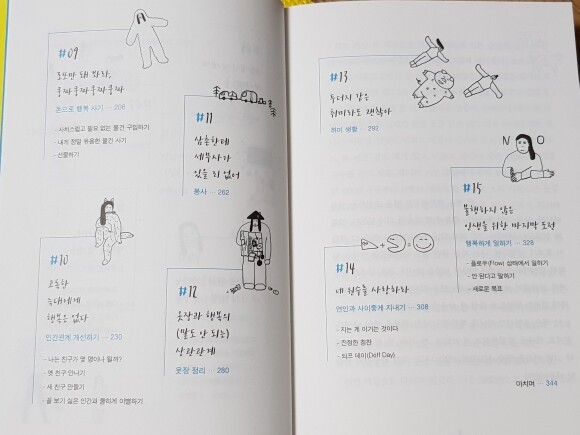 #09
로또만 돼 봐라,
쿵짜쿵짜쿵짜쿵짜
돈으로 행복 사기 ··· 206
- 사치스럽고 필요 없는 물건 구입하기
- 내게 정말 유용한 물건 사기
- 선물하기
#10
고독한
늑대에게
행복은 없다
인간관계 개선하기 ··· 230
- 나는 친구가 몇 명이나 될까?
- 옛 친구 만나기
- 새 친구 만들기
- 꼴 보기 싫은 인간과 쿨하게 이별하기
#11
삼촌한테
세무사가
있을 리 없어
봉사 ··· 262
#12
옷장과 행복의
(말도 안 되는)
상관관계
옷장 정리 ··· 280
#13
두더지 같은
취미라도 괜찮아
취미 생활 ··· 292
#14
네 원수를 사랑하라
연인과 사이좋게 지내기 ··· 308
- 지는 게 이기는 것이다
- 진정한 칭찬
- 되프 데이(Deff Day)
N O
#15
불행하지 않은
인생을 위한 마지막 도전
행복하게 일하기 ··· 328
- 플로우(Flow) 상태에서 일하기
- 안 된다고 말하기
- 새로운 목표
마치며 ··· 344